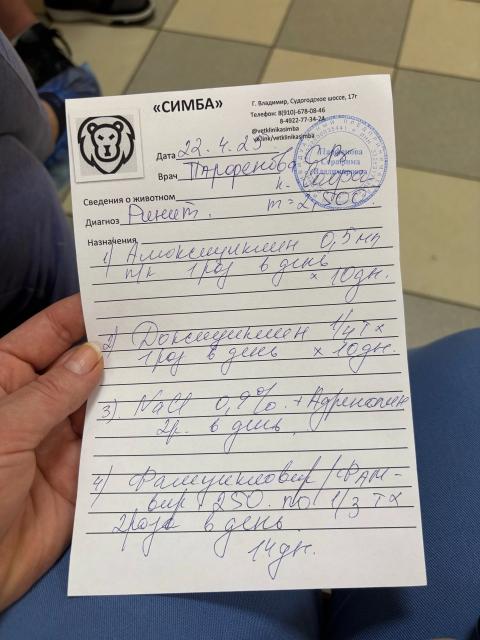 «СИМБА»
Г. Владимир, Судогодское шоссе, 17г
Телефон: 8(910)-678-08-46
8-4922-77-34-24
@vetklinikasimba
vk/vetklinikasimba
Дата 22.4.25
Врач Парфенова
Сведения о животном к.
m=2,500
Диагноз Ринит.
Назначения
1) Амоксициллин 0,5 мл
п/к 1 раз в день
х 10 дн.
2) Доксициклин 1/4 тх
1 раз в день х 10 дн.
3) NaCl 0,9%. + Адреналин
2р. в день.
4) Фамцикловир / Фам-
вир 250. по 1/3 тх
2 раза в день.
14 дн.